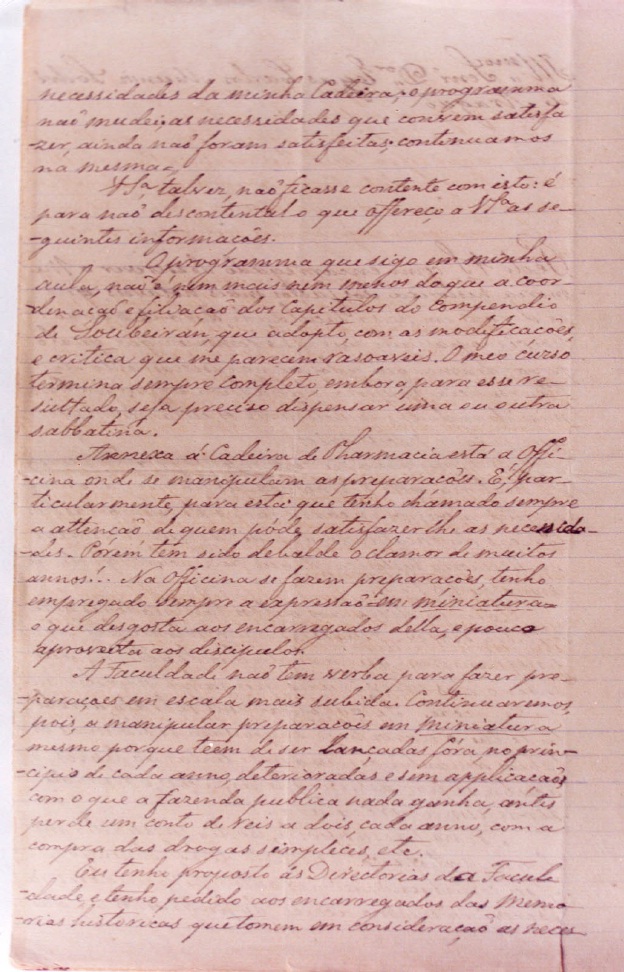 necessidades da minha Cadeira; o programma
naõ mudei; as necessidades que convem satisfa
zer, ainda naõ foram satisfeitas; continuamos
na mesma=,
V Sª talvez, naõ ficasse contente com isto: é
para naõ descontental-o que offereço a V Sª as se-
-guintes informacões.
O programma que sigo em minha
aula, naõ é nem mais nem menos do que a coor-
denaçaõ e filiaçaõ dos Capitulos do Compendio
de Soubeiran, que adopto, com as modificacões,
e critica que me parecem rasoaveis. O meo curso
termina sempre completo, embora, para esse re-
sultado, seja preciso dispensar uma ou outra
sabbatina.
Annexa á Cadeira de Pharmacia está a Offi-
-cina onde se manipulam as preparacões. É, par-
-ticularmente, para esta que tenho chámado sempre
a attençaõ de quem póde satisfazer lhe as necessida-
-des. Pórem tem sido debalde o clamor de muitos
annos!.. Na Officina se fazem preparacões, tenho
empregado sempre a expressaõ=em miniatura=
o que desgosta aos encarregados della, e pouco
aproveita aos discipulos.
A Faculdade naõ tem verba para fazer pre-
-paraçoes em escala mais subida. Continuaremos,
pois, a manipular preparacões em miniatura
mesmo porque teem de ser lançadas fóra, no prin-
-cipio de cada anno, deterioradas e sem applicaçaõ
com o que a fazenda publica nada ganha, antes
perde um conto de reis a dois, cada anno, com a
compra das drogas simpleces, etc.
Eu tenho proposto ás Directorias da Facul
-dade, e tenho pedido aos encarregados das Memo
-rias historicas que tomem em consideraçaõ as neces